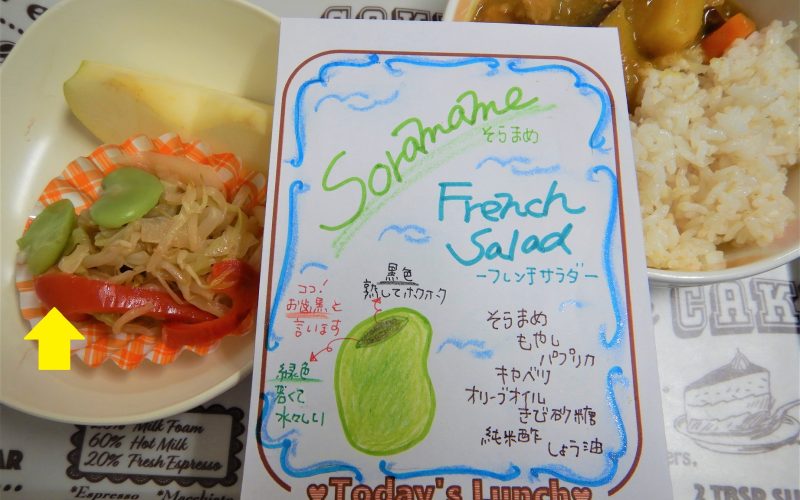 CAKE
Soramame
そらまめ
French
Salad
ーフレンチサラダー
ココ!
お歯黒と
言います
黒色
熟してホクホク
緑色
若くて
水々しい
そらまめ
もやし
パプリカ
キャベツ
オリーブオイル
きび砂糖
純米酢
しょう油
♥Today's Lunch♥
Milk Foam
60% Hot Milk
20% Fresh Espresso
*Espresso
CAK
2 TBSP